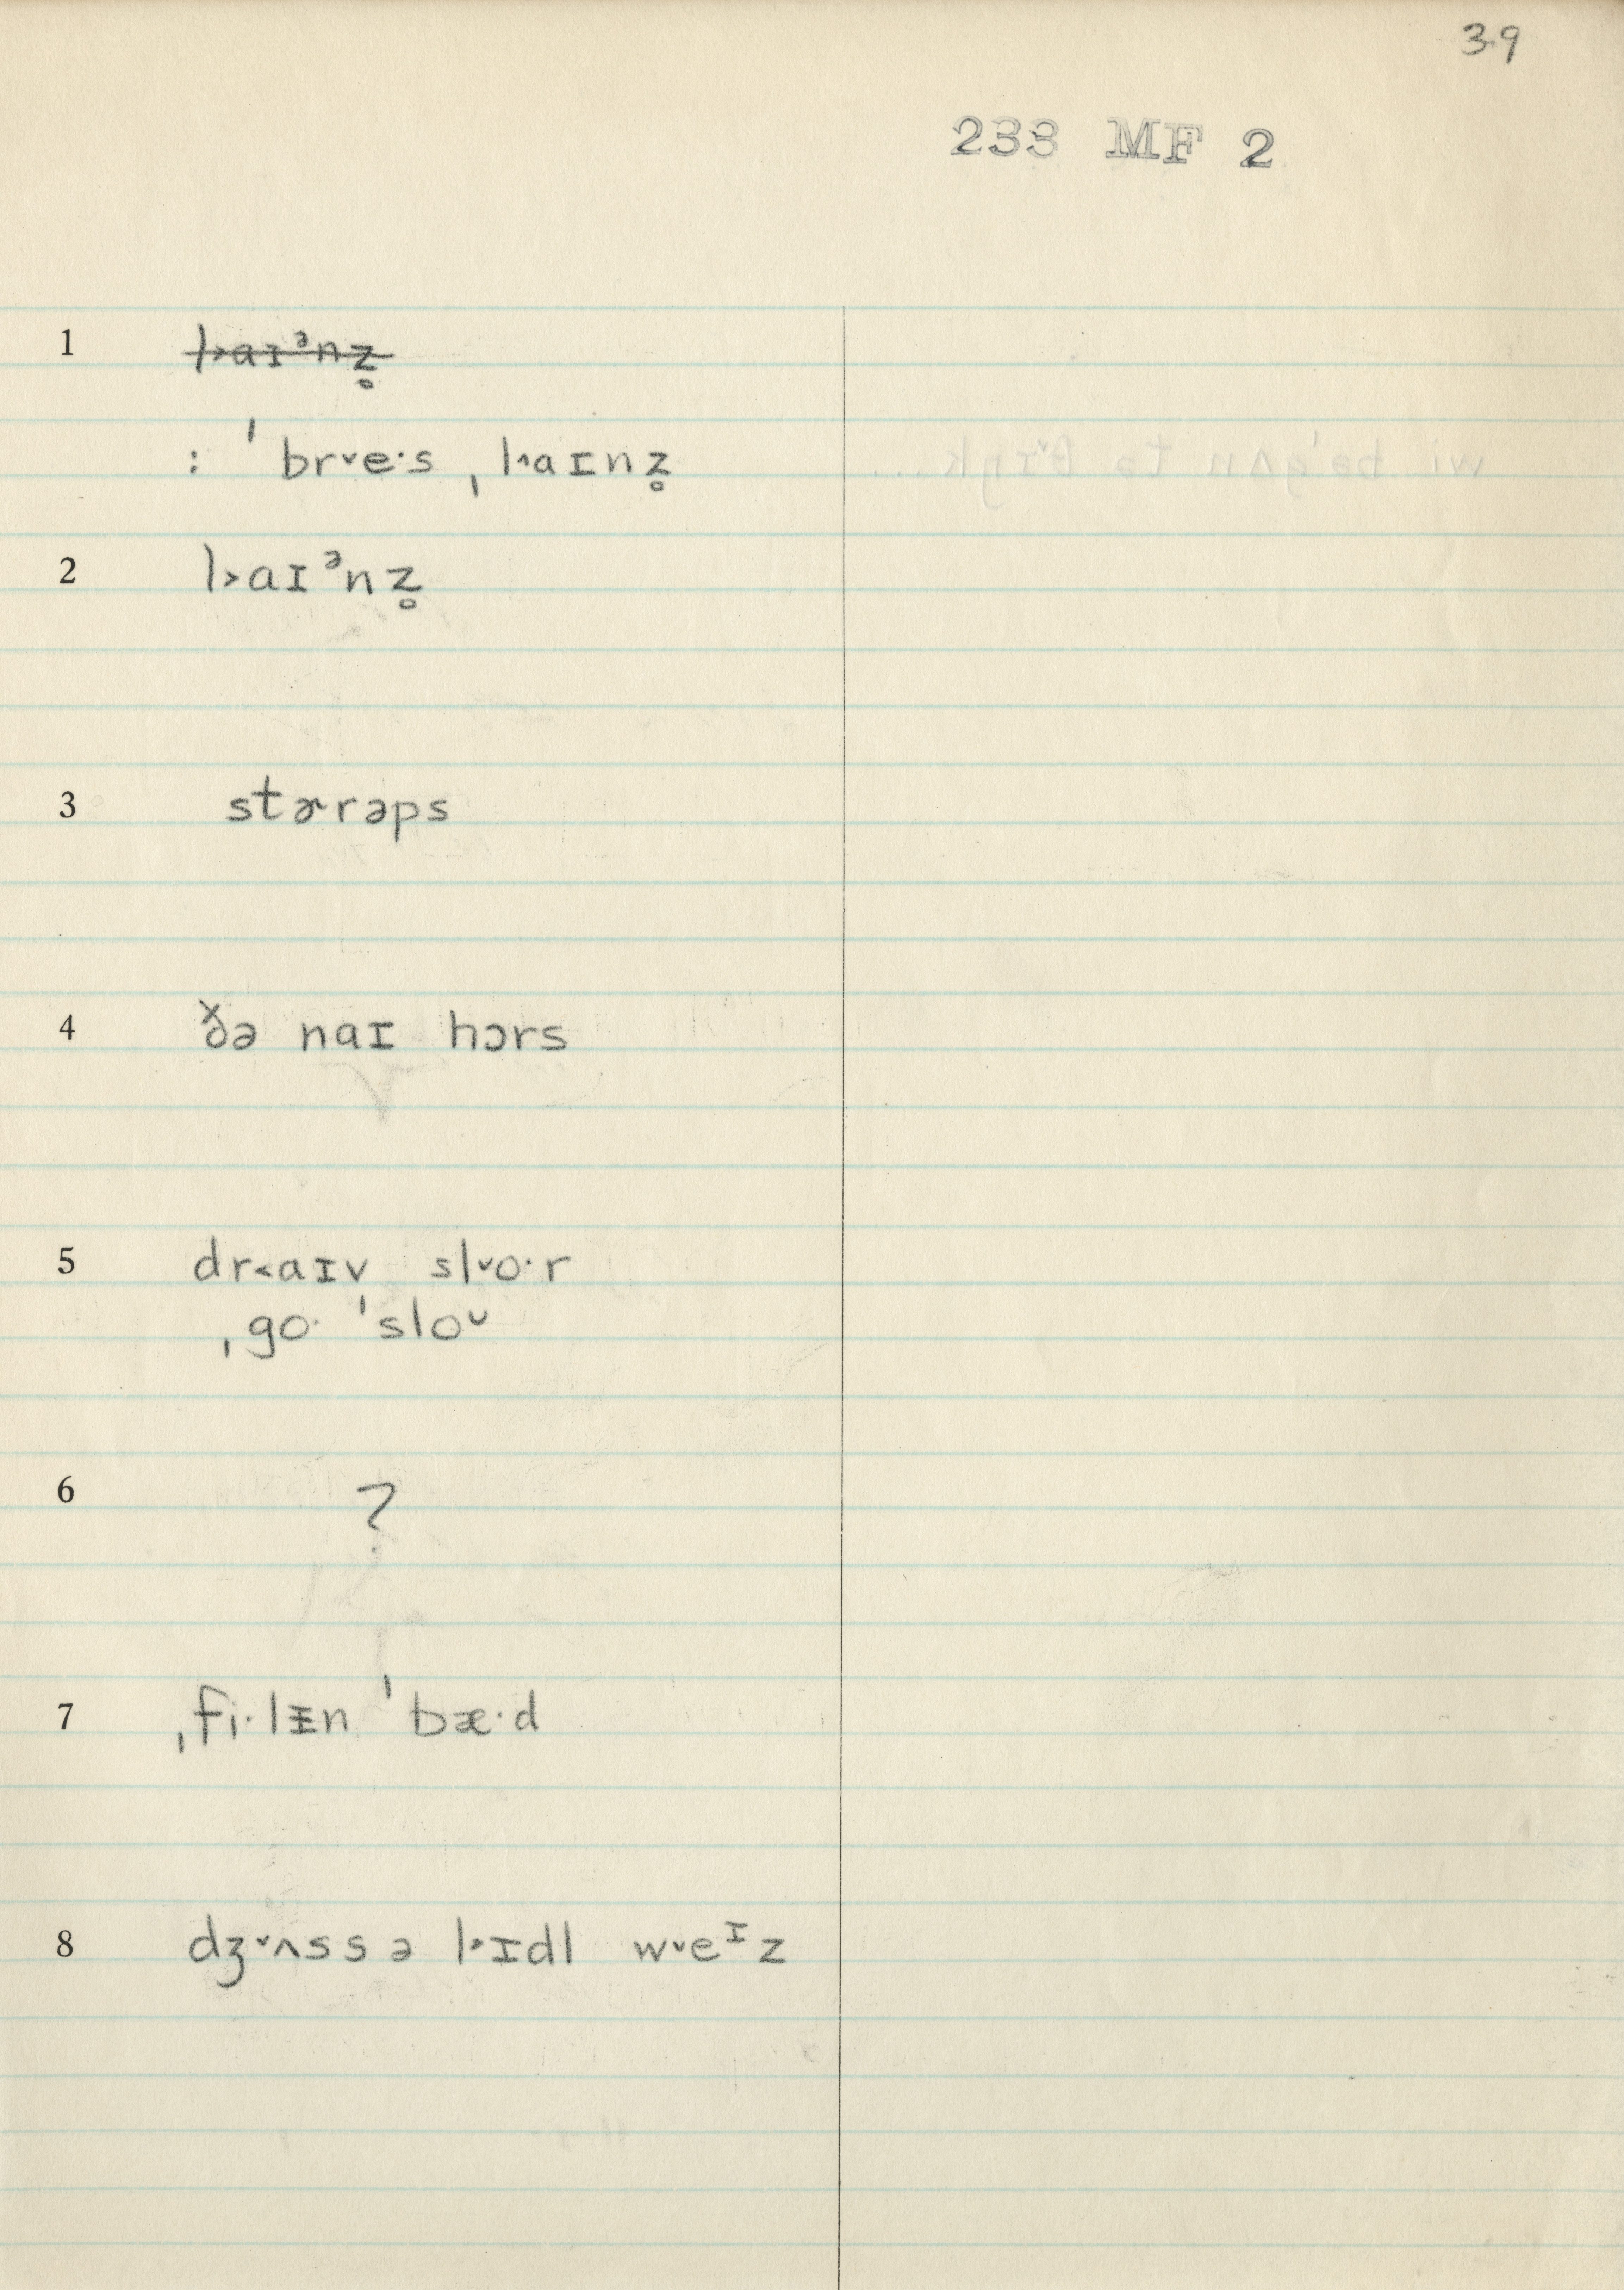 39
233 MF 2
1 l˃aɪᵊnz̥
: ˈbr˅e·s ˌl˄aɪnz̥
2 l˃aɪᵊnz̥
3 stɚrəps
4 ðə naɪ hɔrs
5 dr˂aɪv sl˅o·r
ˌgo· ˈsloᴜ
6 ?
7 ˌfi·lɪ̵n ˈbæ·d
8 dʒ˅ʌss ə l˃ɪdl w˅eᶦz